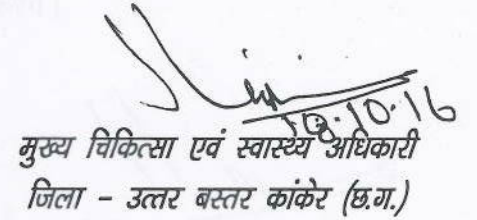 18.10.16
मुख्य चिकित्सा एवं स्वास्थ्य अधिकारी
जिला - उत्तर बस्तर कांकेर (छ.ग.)